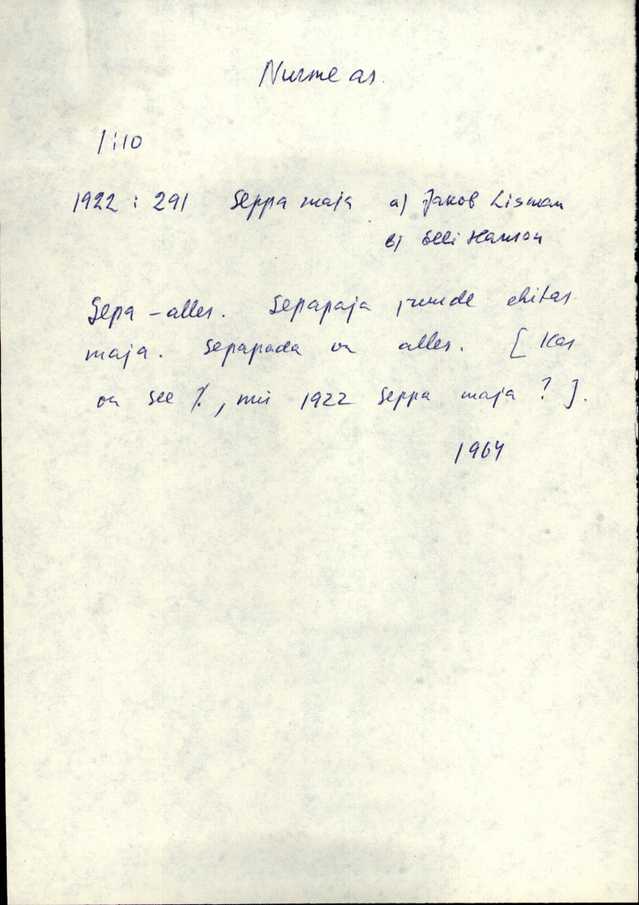 Nurme as.
1:10
1922 : 291 Seppa maja a) Jakob Lisman
b) Elli Hanson
Sepa - alles. Sepapaja ehitas
maja. Sepapada on alles. [ Kas
on see %, mis 1922 Seppa maja ? ].
1964